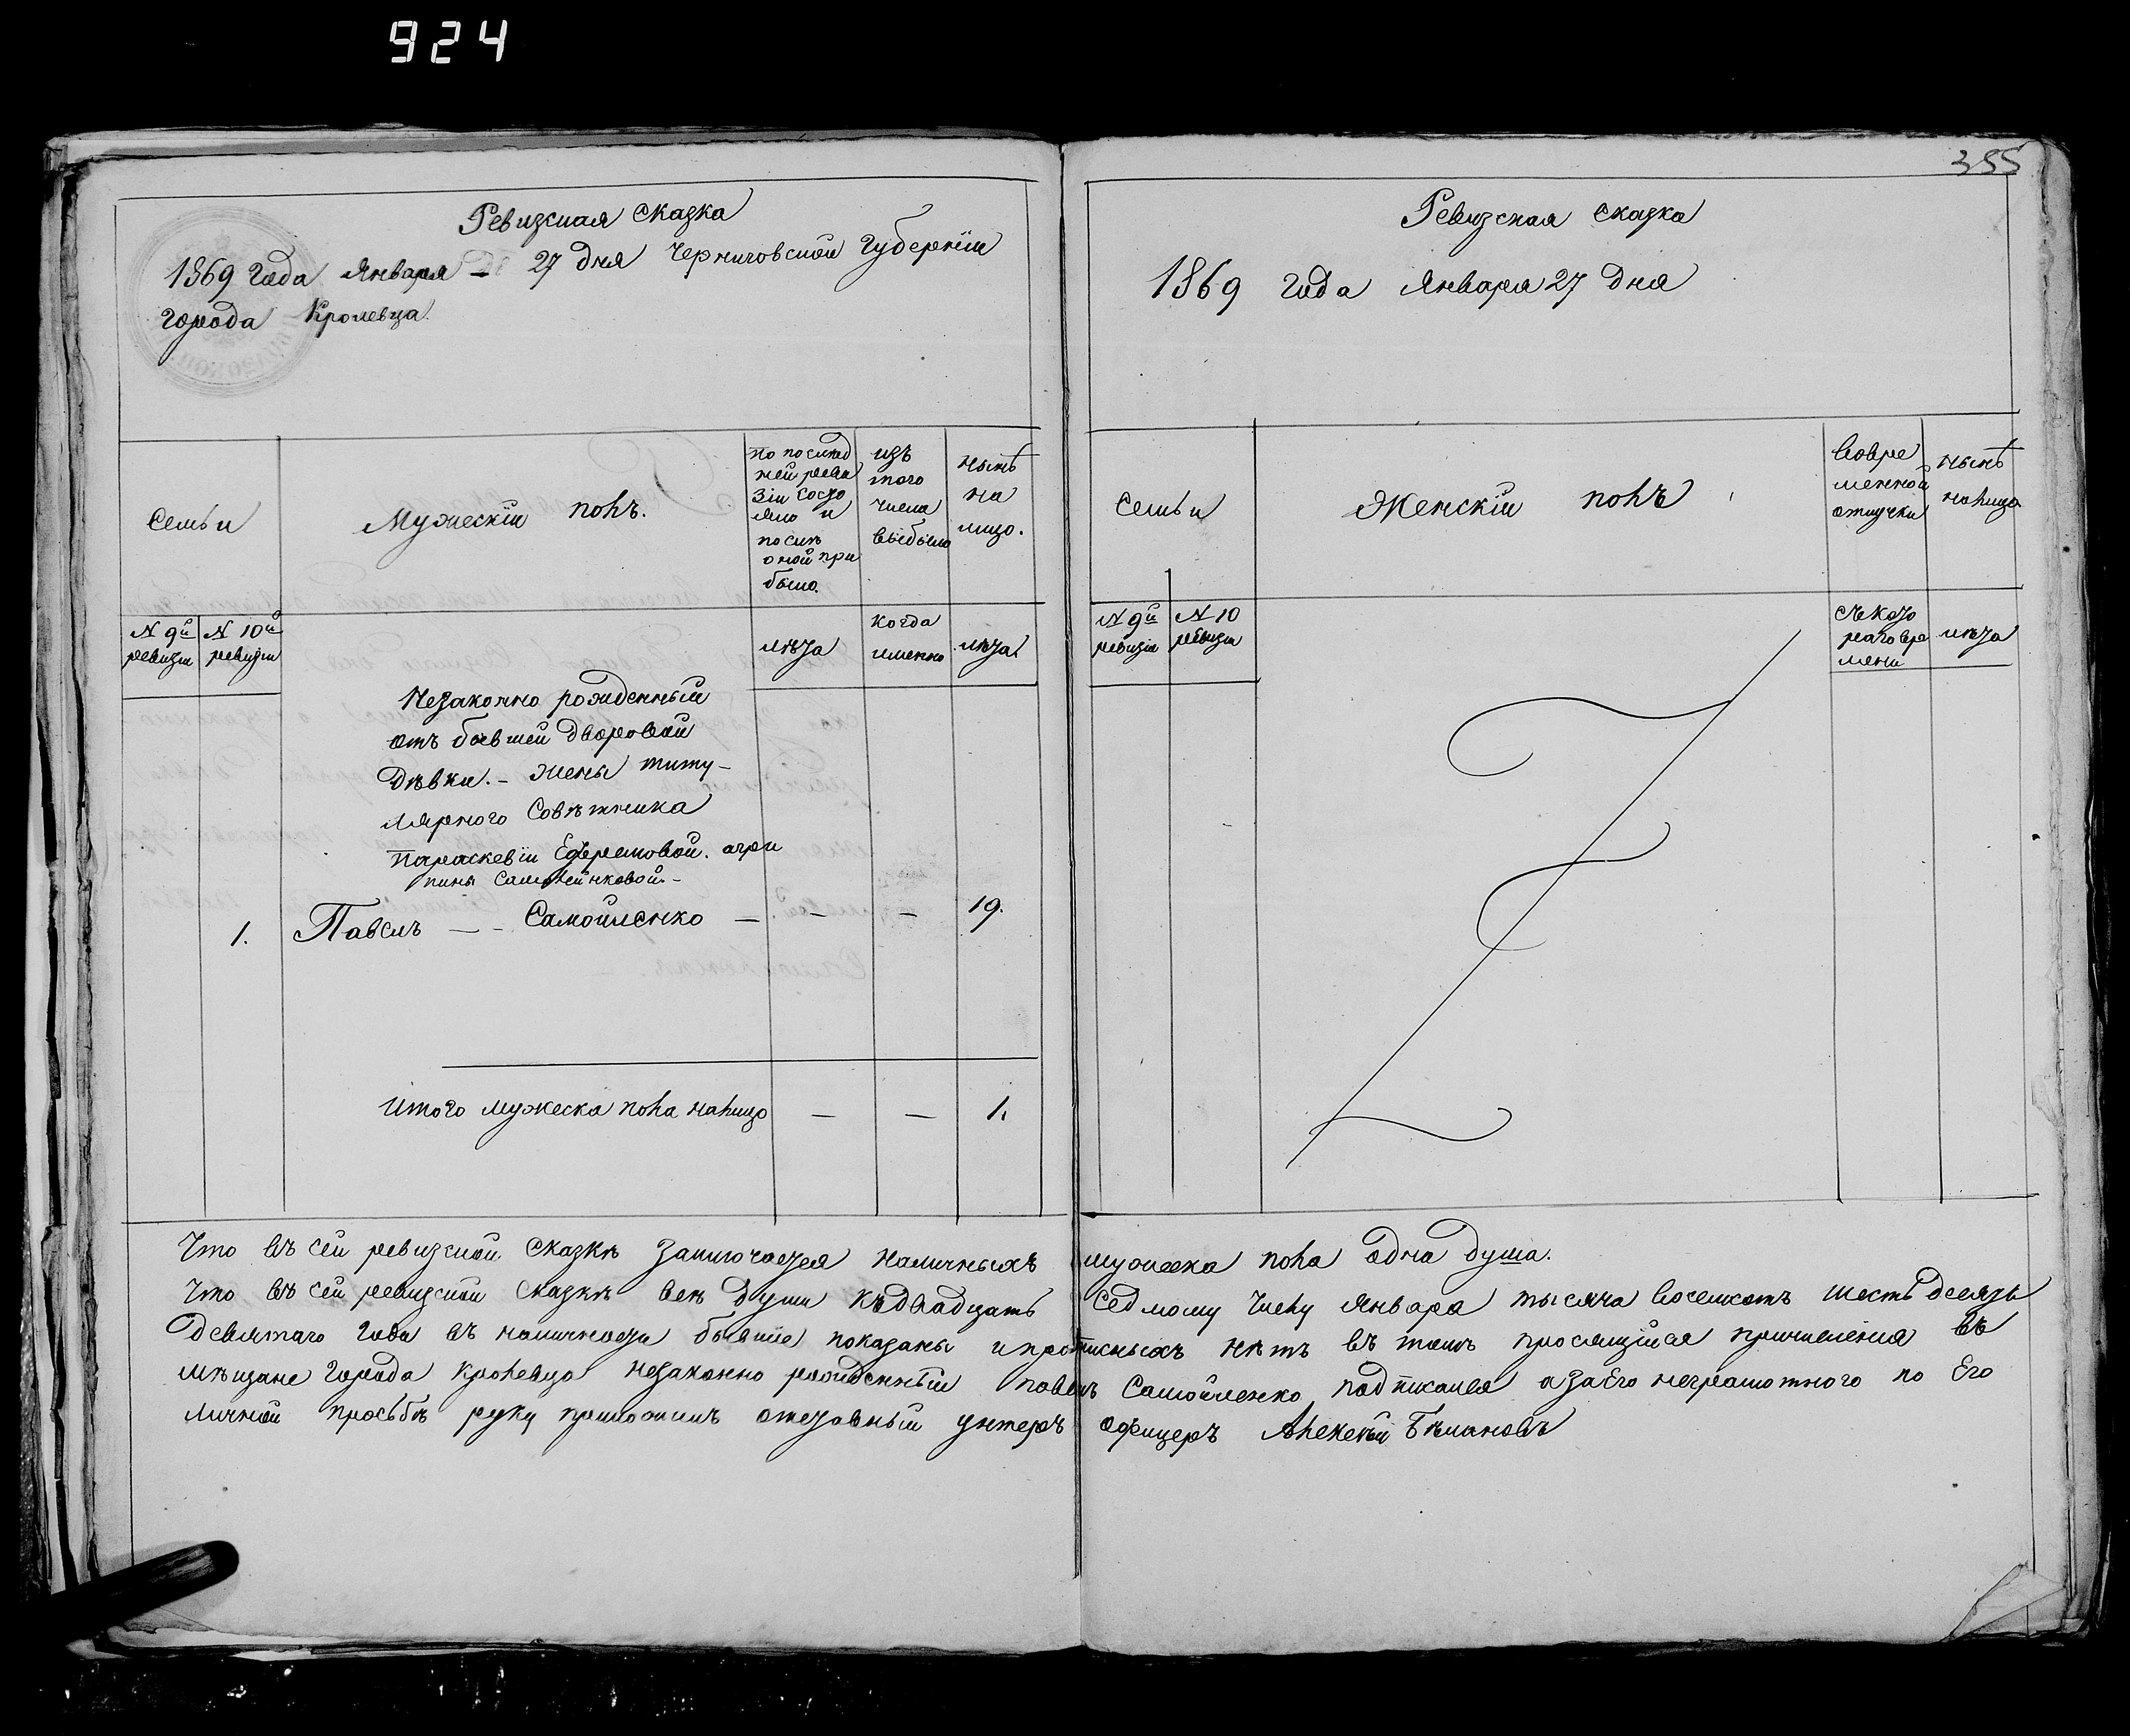 924
355
Ревизская Сказка
1869 Года Января 27 дня Черниговской Губерніи
города Кролевца.
Семьи
Мужескій полъ.
по послед
ней реви
зіи состо
яло и
послѣ
оной при
было.
изъ
того
числа
выбыло
нынѣ
на
лицо.
№ 9й
ревизіи
№ 10й
ревизіи
лѣта
когда
именно
лѣта
Незаконно рожденный
отъ бывшей дворовой
Дѣвки. – жены титу–
лярнаго Совѣтника
Параскевіи Ефремовой. агри
пины Самойленковой –
1. Павелъ — – Самойленко — – – 19.
Итого мужеска пола налицо — — 1.
Ревизская Сказка
1869 Года Января 27 Дня
Семьи
Женскій полъ
во вре
менной
отлучки
нынѣ
налицо
№ 9й
ревизіи
№ 10
ревизіи
съ кото
раго вре
мени
лѣта
Что въ сей ревизской Сказкѣ заключается наличныхъ мужеска пола одна душа.
Что въ сей ревизской Сказкѣ всѣ души къ двадцать Седмому Числу Января тысяча восемсотъ шестьдесятъ
Девятаго Года въ наличности бывшіе показаны и прописныхъ нѣтъ въ томъ просящійся причисленія въ
мѣщане Города Кролевца незаконно рожденный Павелъ Самойленко подписался а за Его неграмотного по Его
личной прозьбѣ руку приложилъ отставный унтеръ офицеръ Алексѣй Бѣлановъ